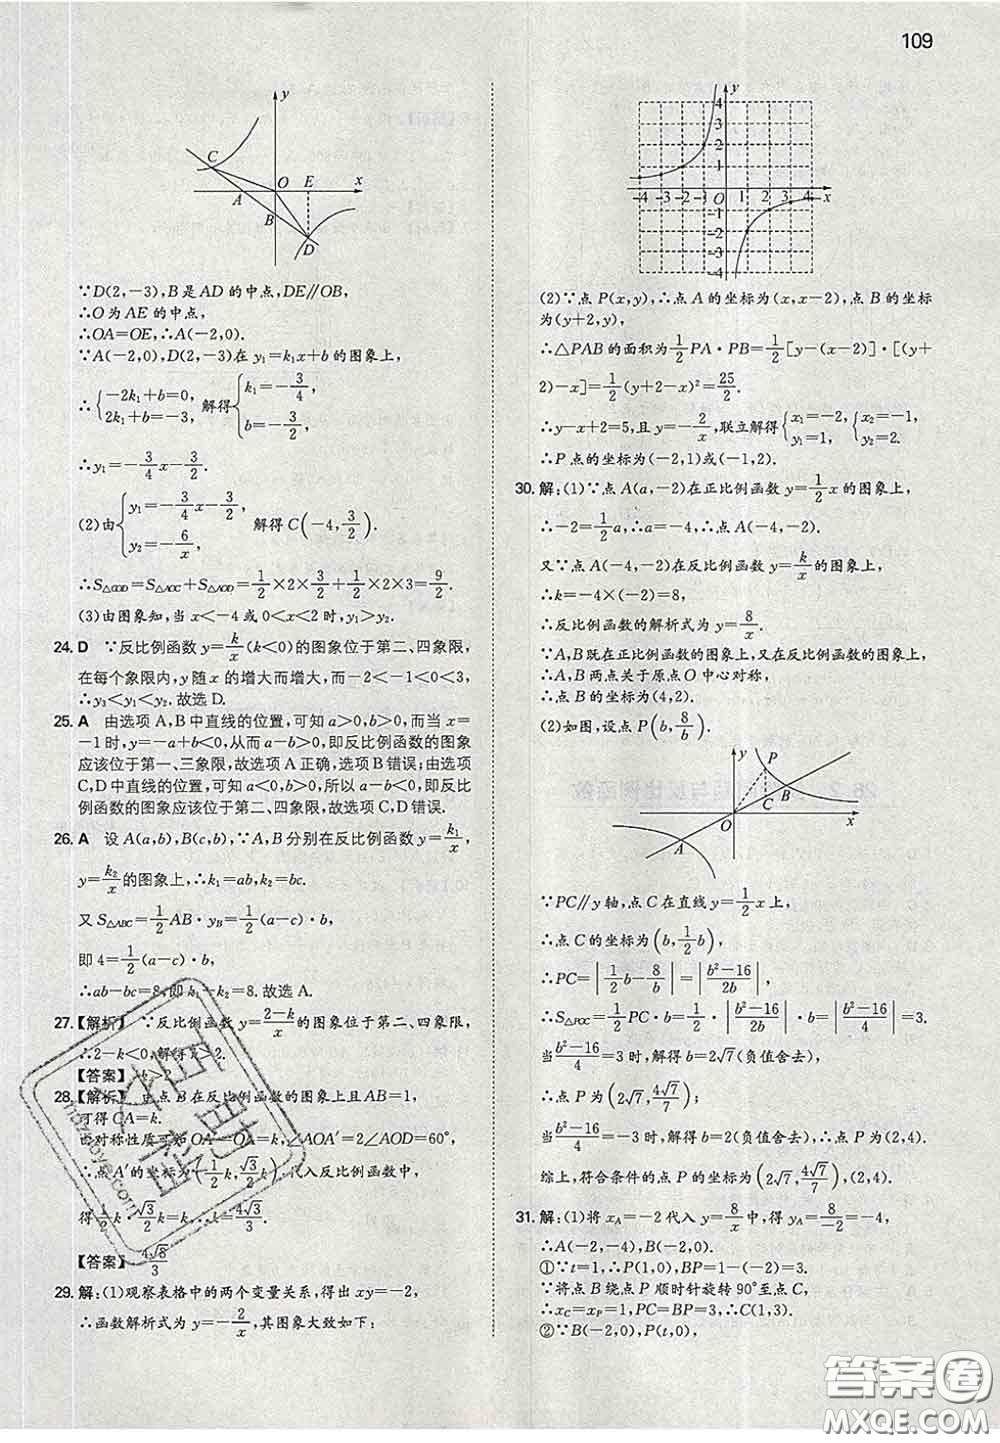 109
y
C
O
E
x
A
B
D
∵D(2,−3),B是AD的中点,DE∥OB,
∴O为AE的中点,
∴OA=OE,∴A(−2,0).
∵A(−2,0),D(2,−3)在y₁=k₁x+b的图象上,
∴{−2k₁+b=0, 2k₁+b=−3, 解得{k₁=−3/4, b=−3/2,
∴y₁=−3/4x−3/2.
(2)由{y₁=−3/4x−3/2, y₂=−6/x, 解得C(−4,3/2).
∴S△COD=S△AOC+S△AOD=1/2×2×3/2+1/2×2×3=9/2.
(3)由图象知,当x<−4或0<x<2时,y₁>y₂.
24. D ∵反比例函数y=k/x(k<0)的图象位于第二、四象限,
在每个象限内,y随x的增大而增大,而−2<−1<0<3,
∴y₃<y₁<y₂.故选D.
25. A 由选项A,B中直线的位置,可知a>0,b>0,而当x=
−1时,y=−a+b<0,从而a−b>0,即反比例函数的图象
应该位于第一、三象限,故选项A正确,选项B错误;由选项
C,D中直线的位置,可知a<0,b>0,所以a−b<0,即反比
例函数的图象应该位于第二、四象限,故选项C,D错误.
26. A 设A(a,b),B(c,b),∵A,B分别在反比例函数y=k₁/x,
y=k₂/x的图象上,∴k₁=ab,k₂=bc.
又S△ABC=1/2AB·yB=1/2(a−c)·b,
即4=1/2(a−c)·b,
∴ab−bc=8,即k₁−k₂=8.故选A.
27.【解析】 ∵反比例函数y=2−k/x的图象位于第二、四象限,
∴2−k<0,解得k>2.
【答案】 k>2
28.【解析】 由点B在反比例函数的图象上且AB=1,
可得OA=k.
由对称性质可知OA′=OA=k,∠AOA′=2∠AOD=60°,
∴点A′的坐标为(1/2k,√3/2k),代入反比例函数中,
得1/2k·√3/2k=k,∴k=4√3/3.
【答案】 4√3/3
29.解:(1)观察表格中的两个变量关系,得出xy=−2,
∴函数解析式为y=−2/x,其图象大致如下:
y
4
3
2
1
−4−3−2−1 O 1 2 3 4 x
−1
−2
−3
−4
(2)∵点P(x,y),∴点A的坐标为(x,x−2),点B的坐标
为(y+2,y),
∴△PAB的面积为1/2PA·PB=1/2[y−(x−2)]·[(y+
2)−x]=1/2(y+2−x)²=25/2.
∴y−x+2=5,且y=−2/x,联立解得{x₁=−2, y₁=1, {x₂=−1, y₂=2.
∴P点的坐标为(−2,1)或(−1,2).
30.解:(1)∵点A(a,−2)在正比例函数y=1/2x的图象上,
∴−2=1/2a,∴a=−4,∴点A(−4,−2).
又∵点A(−4,−2)在反比例函数y=k/x的图象上,
∴k=−4×(−2)=8,
∴反比例函数的解析式为y=8/x.
∵A,B既在正比例函数的图象上,又在反比例函数的图象上,
∴A,B两点关于原点O中心对称,
∴点B的坐标为(4,2).
(2)如图,设点P(b,8/b).
y
P
C
B
O
x
A
∵PC∥y轴,点C在直线y=1/2x上,
∴点C的坐标为(b,1/2b),
∴PC=|1/2b−8/b|=|b²−16/2b|,
∴S△POC=1/2PC·b=1/2·|b²−16/2b|·b=|b²−16/4|=3.
当b²−16/4=3时,解得b=2√7(负值舍去),
∴点P为(2√7,4√7/7),
当b²−16/4=−3时,解得b=2(负值舍去),∴点P为(2,4).
综上,符合条件的点P的坐标为(2√7,4√7/7),(2,4).
31.解:(1)将xA=−2代入y=8/x中,得yA=8/−2=−4,
∴A(−2,−4),B(−2,0).
①∵t=1,∴P(1,0),BP=1−(−2)=3.
∵将点B绕点P顺时针旋转90°至点C,
∴xC=xP=1,PC=BP=3,∴C(1,3).
②∵B(−2,0),P(t,0),
答案圈
MXQE.COM